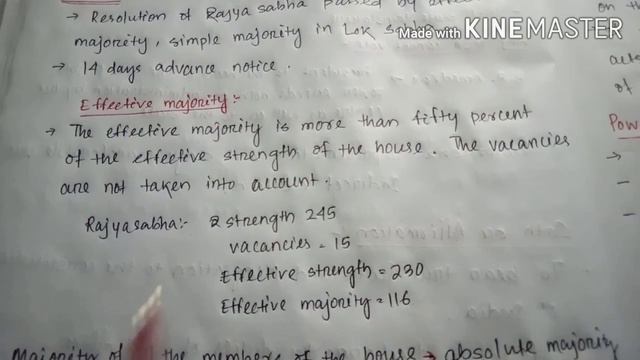 → Resolution of Rajya sabha passed by
majority, simple majority in Lok
Made with KINEMASTER
→ 14 days advance notice.
Effective majority:-
→ The effective majority is more than fifty percent
of the effective strength of the house. The vacancies
are not taken into account.
Rajyasabha:- strength 245
vacancies = 15
Effective strength = 230
Effective majority = 116
Majority of the members of the house → absolute majority
on
of
Pow
→
-
-